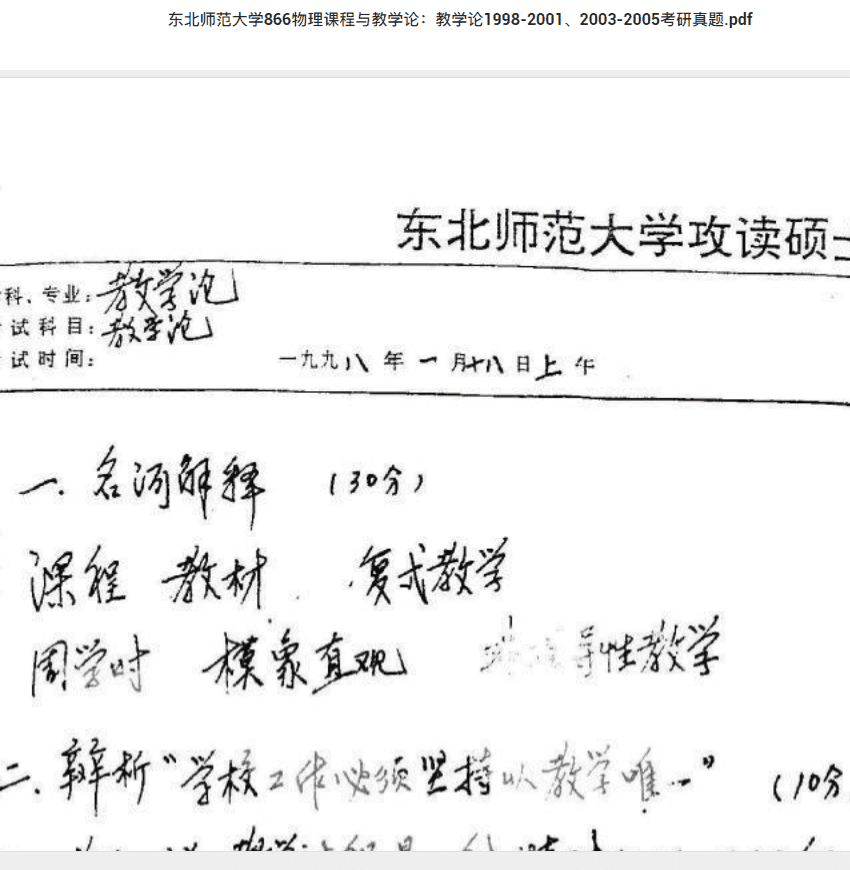 东北师范大学866物理课程与教学论：教学论1998-2001、2003-2005考研真题.pdf
东北师范大学攻读硕
科、专业：教学论
试科目：教学论
试时间：
一九九八年一月十八日上午
一. 名词解释 （30分）
课程 教材 复式教学
周学时 模象直观 导性教学
二. 辩析“学校工作必须坚持以教学唯一” （10分